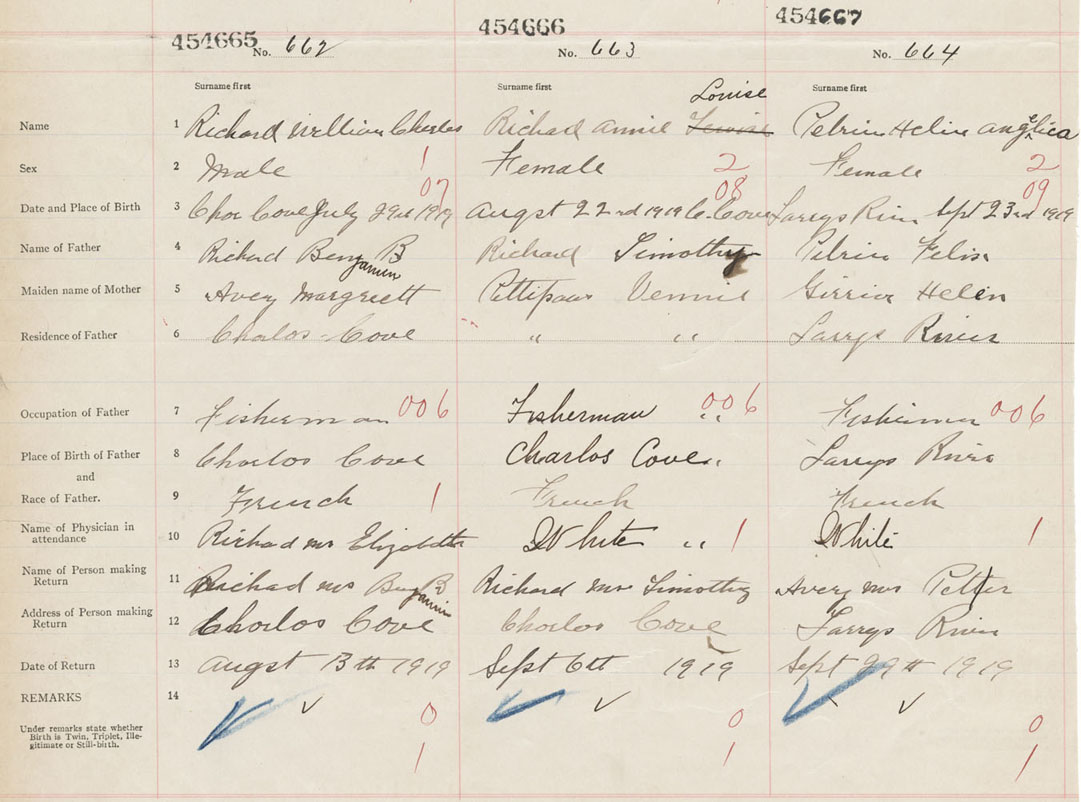 454665 No. 662 454666 No. 663 454667 No. 664
Surname first Surname first Surname first
Louise
Name 1 Richard William Charles Richard Annie Louise Petrie Helin Angelica
Sex 2 Male 1 Female 2 Female 2
07 08 09
Date and Place of Birth 3 Chor Cove July 29th 1919 Augst 22rd 1919 C. Cove Larrys River Sept 23rd 1919
Name of Father 4 Richard Benjamin B Richard Timothy Petrie Felix
Maiden name of Mother 5 Avery Margrett Pettipaw Vennie Girrior Helen
Residence of Father 6 Charlos Cove " " Larrys River
Occupation of Father 7 Fisherman 006 Fisherman " 006 Fisherman 006
Place of Birth of Father 8 Charlos Cove Charlos Cove " Larrys River
and
Race of Father. 9 French 1 French French
Name of Physician in
attendance 10 Richard mrs Elizabeth White " 1 White 1
Name of Person making
Return 11 Richard mrs Benjamin B Richard mrs Timothy Avery mrs Petter
Address of Person making
Return 12 Charlos Cove Charlos Cove Larrys River
Date of Return 13 Augst 13th 1919 Sept 6th 1919 Sept 29th 1919
REMARKS 14
0 0 0
Under remarks state whether
Birth is Twin, Triplet, Ille-
gitimate or Still-birth.
1 1 1